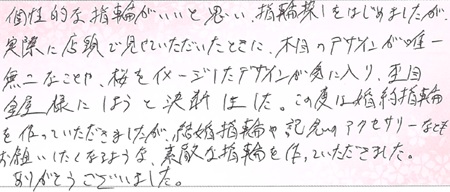 個性的な指輪がいいと思い、指輪探しをはじめましたが、
実際に店頭で見せていただいたときに、木目のデザインが唯一
無二なことや、桜をイメージしたデザインが気に入り、杢目
金屋様にしようと決断しました。この度は婚約指輪
を作っていただきましたが、結婚指輪や記念のアクセサリーなども
お願いしたくなるような、素敵な指輪を作っていただきました。
ありがとうございました。